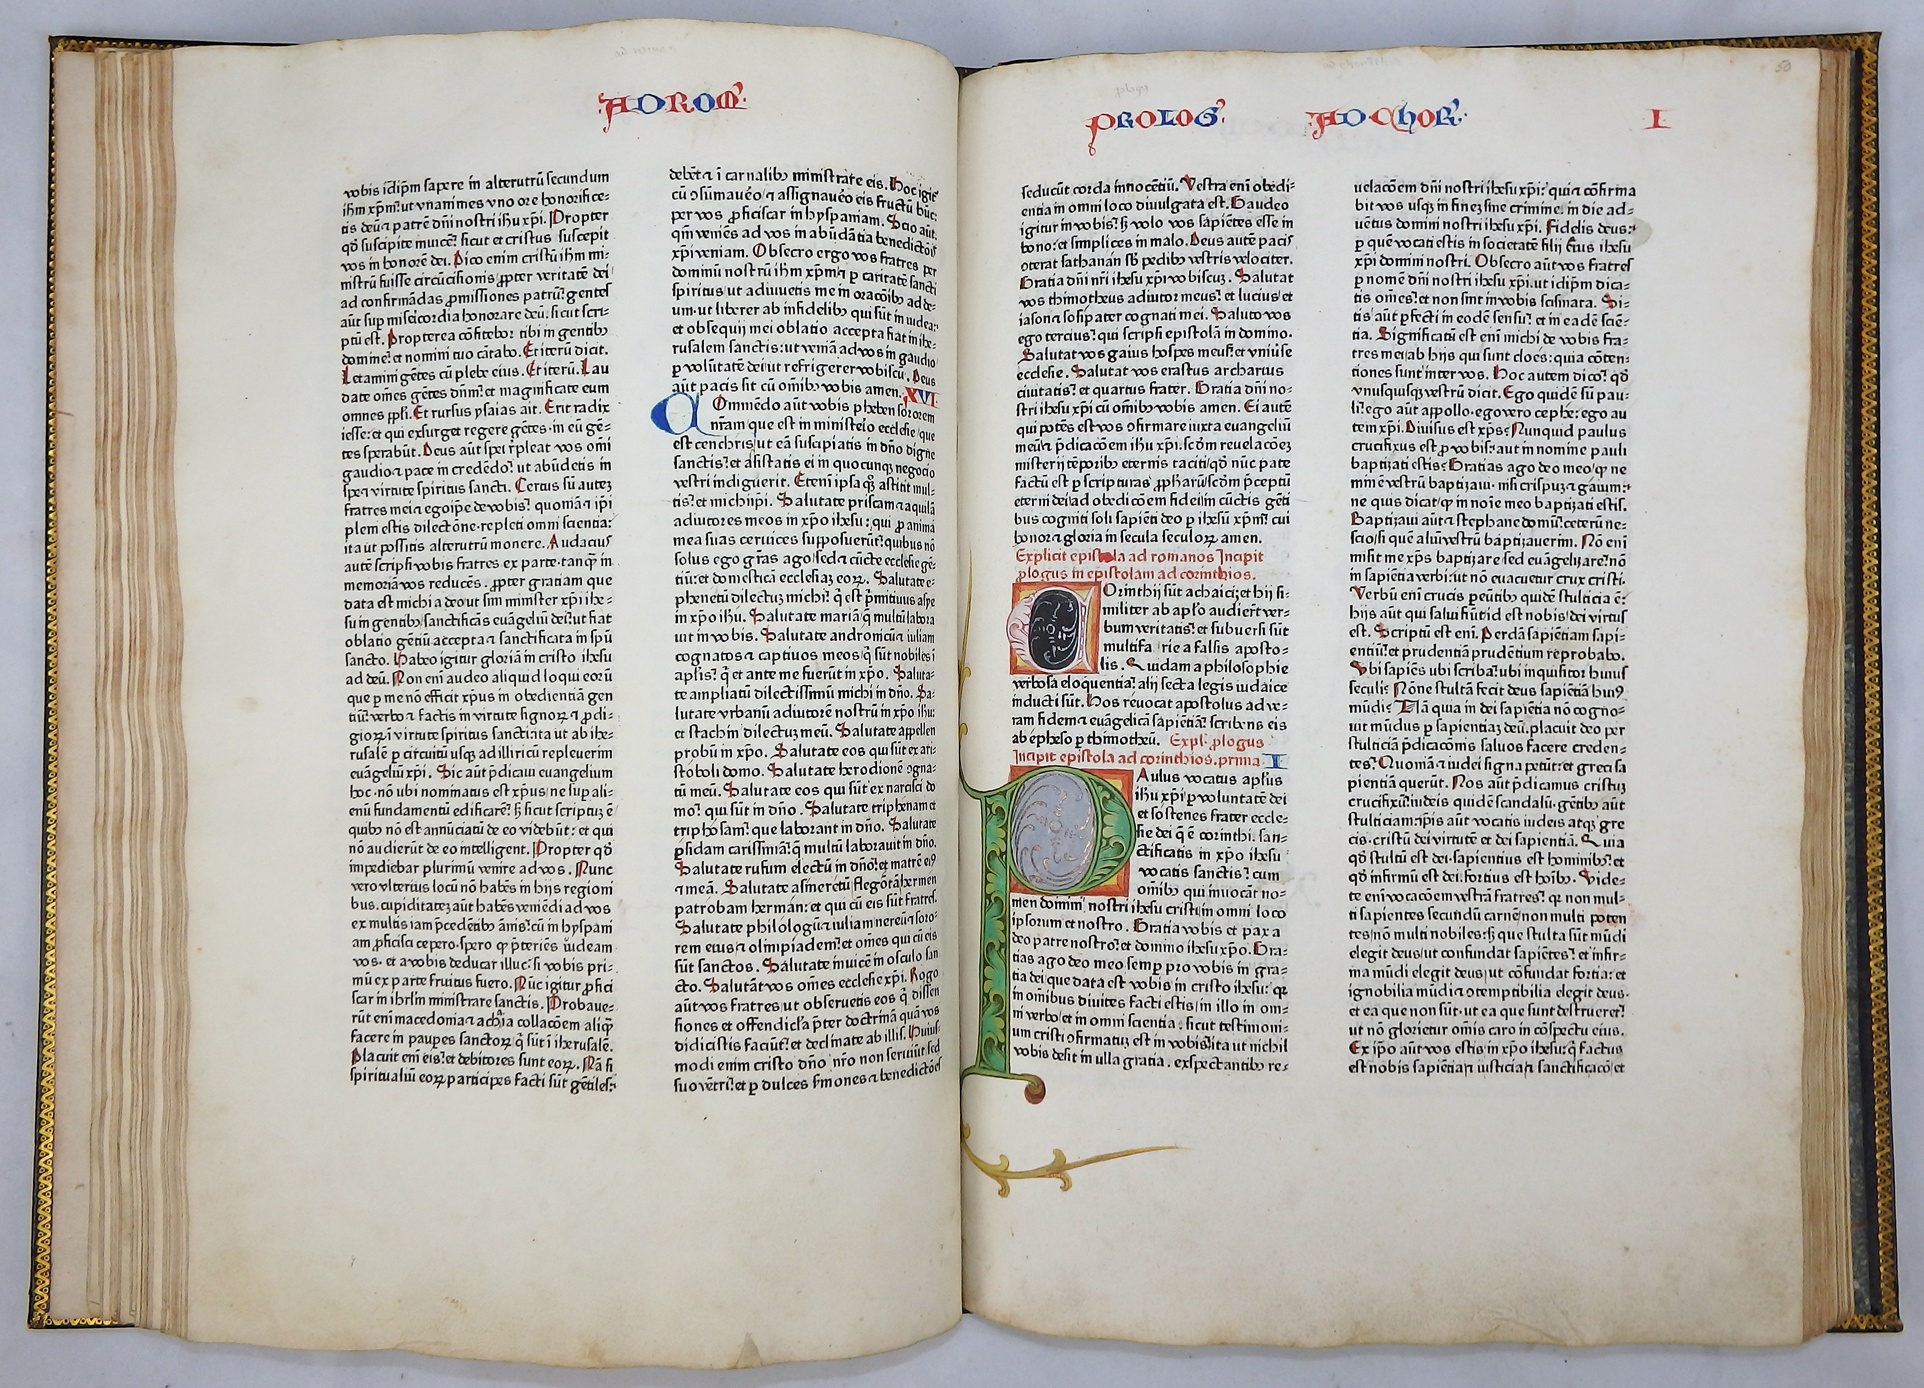 AD ROM̄.
vobis id̄ipm̄ sapere in alterutrū secundum
ihm̄ xpm̄: ut vnanimes vno ore honorifice=
tis deū ⁊ patrē dn̄i nostri ihū xp̄i. Propter
qd̄ suscipite inuicē: sicut et cristus suscepit
vos in honorē dei. Dico enim cristū ihm̄ mi=
nistrū fuisse circūcisionis ꝓpter veritatē dei
ad confirmādas ꝓmissiones patrū: gentes
aūt sup̱ misēicordia honorare deū. sicut scri=
ptū est. Propterea cōfitebor tibi in gentibꝫ
domine: et nomini tuo cātabo. Et iterū dicit.
Letamini gētes cū plebe eius. Et iterū. Lau
date om̄es gētes dn̄m: et magnificate eum
omnes pp̄li. Et rursus ysaias ait. Erit radix
iesse: et qui exsurget regere gētes. in eū gē=
tes sperabūt. Deus aūt spei r̄pleat vos om̄i
gaudio ⁊ pace in credēdo: ut abūdetis in
spe ⁊ virtute spiritus sancti. Certus sū autē
fratres mei ⁊ ego ip̄e de vobis: quoniā ⁊ ip̄i
pleni estis dilectōne. repleti omni scientia:
ita ut possitis alterutrū monere. Audacius
autē scripsi vobis fratres ex parte. tanq̄ in
memoriā vos reducēs. ꝓpter gratiam que
data est michi a deo ut sim minister xp̄i ihe=
su in gentibꝫ sanctificās euāgeliū dei: ut fiat
oblatio gētiū accepta ⁊ sanctificata in spū
sancto. Habeo igitur gloriā in cristo ihesu
ad deū. Non enī audeo aliquid loqui eorū
que ꝑ me nō efficit xp̄us in obedientiā gen
tiū: verbo ⁊ factis in virtute signorꝝ ⁊ ꝓdi=
giorꝝ in virtute spiritus sancti: ita ut ab ihe=
rusalē ꝑ circuitū usqꝫ ad illiricū repleuerim
euāgeliū xp̄i. Sic aūt p̄dicaui euangelium
hoc. nō ubi nominatus est xp̄us: ne sup̱ ali=
enū fundamentū edificarē: sꝫ sicut scriptuꝫ ē
quibꝫ nō est annūciatū de eo videbūt: et qui
nō audierūt de eo intelligent. Propter qd̄
impediebar plurimū venire ad vos. Nunc
vero vlterius locū nō habēs in hijs regioni
bus. cupiditateꝫ aūt habēs veniēdi ad vos
ex multis iam p̄cedētibꝫ ānis: cū in hyspani
am ꝓficisci cepero. spero qꝫ p̄teriēs videam
vos. et a vobis deducar illuc: si vobis pri=
mū ex parte fruitus fuero. Nūc igitur ꝓfici
scar in ihrlm̄ ministrare sanctis. Probaue=
rūt enī macedonia ⁊ achaia collacōem aliqꝫ
facere in paupes sanctorꝝ q̄ sūt ī iherusalē.
Placuit enī eis: et debitores sunt eorꝝ. Nā si
spiritualiū eorꝝ participes facti sūt gētiles:
debēt ⁊ ī carnalibꝫ ministrare eis. Hoc igit̄
cū ꝯsūmauēo ⁊ assignauēo eis fructū hūc:
per vos ꝓficiscar in hyspaniam. Scio aūt
qm̄ veniēs ad vos in abūdātia benedictōīs
xp̄i veniam. Obsecro ergo vos fratres per
dominū nostrū ihm̄ xpm̄ ⁊ ꝑ caritatē sancti
spiritus ut adiuuetis me in oracōibꝫ ad de=
um. ut liberer ab infidelibꝫ qui sūt in iudea:
et obsequij mei oblatio accepta fiat in ihe=
rusalem sanctis: ut veniā ad vos in gaudio
ꝑ volūtatē dei ut refrigerer vobiscū. Deus
aūt pacis sit cū om̄ibꝫ vobis amen. XVI
COmmēdo aūt vobis pheben sororem
nr̄am que est in ministeīo ecclesie que
est cenchris: ut eā suscipiatis in dn̄o digne
sanctis: et assistatis ei in quocunqꝫ negocio
vestri indiguerit. Etenī ipsa qꝫ astitit mul=
tis: et michi ip̄i. Salutate priscam ⁊ aquilā
adiutores meos in xp̄o ihesu: qui ꝓ anima
mea suas ceruices supposuerūt: quibus nō
solus ego gr̄as ago: sed ⁊ cūcte ecclesie gē
tiū: et domesticā ecclesiaꝫ eorꝝ. Salutate e=
phenetū dilectuꝫ michi: q̄ est p̄mitiuus asie
in xp̄o ihū. Salutate mariā q̄ multū labora
uit in vobis. Salutate andronicū ⁊ iuliam
cognatos ⁊ captiuos meos q̄ sūt nobiles ī
aplis: q̄ et ante me fuerūt in xp̄o. Saluta=
te ampliatū dilectissimū michi in dn̄o. Sa=
lutate vrbanū adiutorē nostrū in xp̄o ihū:
et stachin dilectuꝫ meū. Salutate appellen
probū in xp̄o. Salutate eos qui sūt ex ari=
stoboli domo. Salutate herodionē ꝯgna=
tū meū. Salutate eos qui sūt ex narcisci do
mo: qui sūt in dn̄o. Salutate triphenam et
triphosam: que laborant in dn̄o. Salutate
ꝑsidam carissimā: q̄ multū laborauit in dn̄o.
Salutate rufum electū in dn̄o: et matrē eiꝰ
⁊ meā. Salutate asineretū flegōtā hermen
patrobam hermān: et qui cū eis sūt fratres.
Salutate philologū ⁊ iuliam nereū ⁊ soro=
rem eius ⁊ olimpiadem: et om̄es qui cū eis
sūt sanctos. Salutate inuicē in osculo san
cto. Salutāt vos om̄es ecclesie xp̄i. Rogo
aūt vos fratres ut obseruetis eos q̄ dissen
siones et offendicl̄a p̄ter doctrinā quā vos
didicistis faciūt: et declinate ab illis. Huius=
modi enim cristo dn̄o nr̄o non seruiūt sed
suo vētri: et ꝑ dulces s̄mones ⁊ benedictōes
PROLOGꝰ. AD CHOR̄. I
seducūt corda innocētiū. Vestra enī obedi=
entia in omni loco diuulgata est. Gaudeo
igitur in vobis: sꝫ volo vos sapiētes esse in
bono: et simplices in malo. Deus autē pacis
ꝯterat sathanān sb̄ pedibꝫ vestris velociter.
Gratia dn̄i nr̄i ihesu xp̄i vobiscuꝫ. Salutat
vos thimotheus adiutor meus: et lucius et
iason ⁊ sosipater cognati mei. Saluto vos
ego tercius: qui scripsi epistolā in domino.
Salutat vos gaius hospes meus: et vniūse
ecclesie. Salutat vos erastus archarius
ciuitatis: et quartus frater. Gratia dn̄i no=
stri ihesu xp̄i cū om̄ibꝫ vobis amen. Ei autē
qui potēs est vos ꝯfirmare iuxta euangeliū
meū ⁊ p̄dicacōem ihū xp̄i. scd̄m reuelacōeꝫ
misterij tēporibꝫ eternis taciti: qd̄ nūc pate
factū est ꝑ scripturas ꝓpharū scd̄m p̄ceptū
eterni dei ad obedicōem fidei in cūctis gēti
bus cogniti soli sapiēti deo ꝑ ihesū xpm̄: cui
honor ⁊ gloria in secula seculorꝝ amen.
Explicit epistola ad romanos Incipit
ꝓlogus in epistolam ad corinthios.
COrinthij sūt achaici: et hij si=
militer ab apl̄o audierūt ver=
bum veritatis: et subuersi sūt
multifarie a falsis aposto=
lis. Quidam a philosophie
verbosa eloquentia: alij secta legis iudaice
inducti sūt. Hos reuocat apostolus ad ve=
ram fidem ⁊ euāgelicā sapiētiā: scribens eis
ab epheso ꝑ thimotheū. Expl̄. ꝓlogus
Incipit epistola ad corinthios. prima I
PAulus vocatus apl̄us
ihū xp̄i ꝑ voluntatē dei
et sostenes frater eccle=
sie dei q̄ ē corinthi. san=
ctificatis in xp̄o ihesu
vocatis sanctis: cum
om̄ibꝫ qui inuocāt no=
men domini nostri ihesu cristi in omni loco
ipsorum et nostro. Gratia vobis et pax a
deo patre nostro: et domino ihesu xp̄o. Gra=
tias ago deo meo semꝑ pro vobis in gra=
tia dei que data est vobis in cristo ihesu: qꝛ
in om̄ibus diuites facti estis in illo in om=
ni verbo et in omni scientia. sicut testimoni=
um cristi ꝯfirmatuꝫ est in vobis: ita ut nichil
vobis desit in ulla gratia. exspectantibꝫ re=
uelacōem dn̄i nostri ihesu xp̄i: qui ⁊ cōfirma
bit vos usqꝫ in fineꝫ sine crimine. in die ad=
uētus domini nostri ihesu xp̄i. Fidelis deus:
ꝑ quē vocati estis in societatē filij eius ihesu
xp̄i domini nostri. Obsecro aūt vos fratres
ꝑ nomē dn̄i nostri ihesu xp̄i. ut id̄ipm̄ dica=
tis om̄es: et non sint in vobis scismata. Si=
tis aūt ꝑfecti in eodē sensu: et in eadē sciē=
tia. Significatū est enī michi de vobis fra=
tres mei ab hijs qui sunt cloes: quia cōten=
tiones sunt inter vos. Hoc autem dico: qd̄
vnusquisqꝫ vestrū dicit. Ego quidē sū pau=
li: ego aūt appollo. ego vero cephe: ego au
tem xp̄i. Diuisus est xp̄s: Nunquid paulus
crucifixus est pro vobis: aut in nomine pauli
baptizati estis: Gratias ago deo meo: qꝫ ne
minē vestrū baptizaui. nisi crispuꝫ ⁊ gaium:
ne quis dicat: qꝫ in noīe meo baptizati estis.
Baptizaui aūt ⁊ stephane domū: ceterū ne=
scio: si que aliū vestrū baptizauerim. Nō enī
misit me xp̄s baptizare: sed euangelizare: nō
in sapientia verbi: ut nō euacuetur crux cristi.
Verbū enī crucis ꝑeūtibꝫ quidē stulticia ē:
hijs aūt qui salui fiūt: id est nobis: dei virtus
est. Scriptū est enī. Perdā sapiētiam sapi=
entiū: et prudentiā prudētium reprobabo.
Vbi sapiēs: ubi scriba: ubi inquisitor huius
seculi: Nōne stultā fecit deus sapiētiā huiꝰ
mūdi: Nā quia in dei sapiētia nō cogno=
uit mūdus ꝑ sapientiaꝫ deū. placuit deo per
stulticiā p̄dicacōnis saluos facere creden=
tes: Quoniā ⁊ iudei signa petūt: et greci sa
pientiā querūt. Nos aūt p̄dicamus cristuꝫ
crucifixū: iudeis quidē scandalū. gētibꝫ aūt
stulticiam: ip̄is aūt vocatis iudeis atqꝫ gre
cis. cristū dei virtutē et dei sapientiā. Quia
qd̄ stultū est dei. sapientius est hominibꝫ: et
qd̄ infirmū est dei. fortius est hoībꝫ. Vide=
te enī vocacōem vestrā fratres: qꝛ non mul=
ti sapientes secundū carnē: non multi poten
tes: nō multi nobiles: sꝫ que stulta sūt mūdi
elegit deus: ut confundat sapiētes: et infir=
ma mūdi elegit deus: ut cōfundat fortia: et
ignobilia mūdi ⁊ ꝯtemptibilia elegit deus.
et ea que non sūt. ut ea que sunt destrueret:
ut nō glorietur om̄is caro in cōspectu eius.
Ex ip̄o aūt vos estis in xp̄o ihesu: q̄ factus
est nobis sapiētia ⁊ iusticia ⁊ sanctificacō et